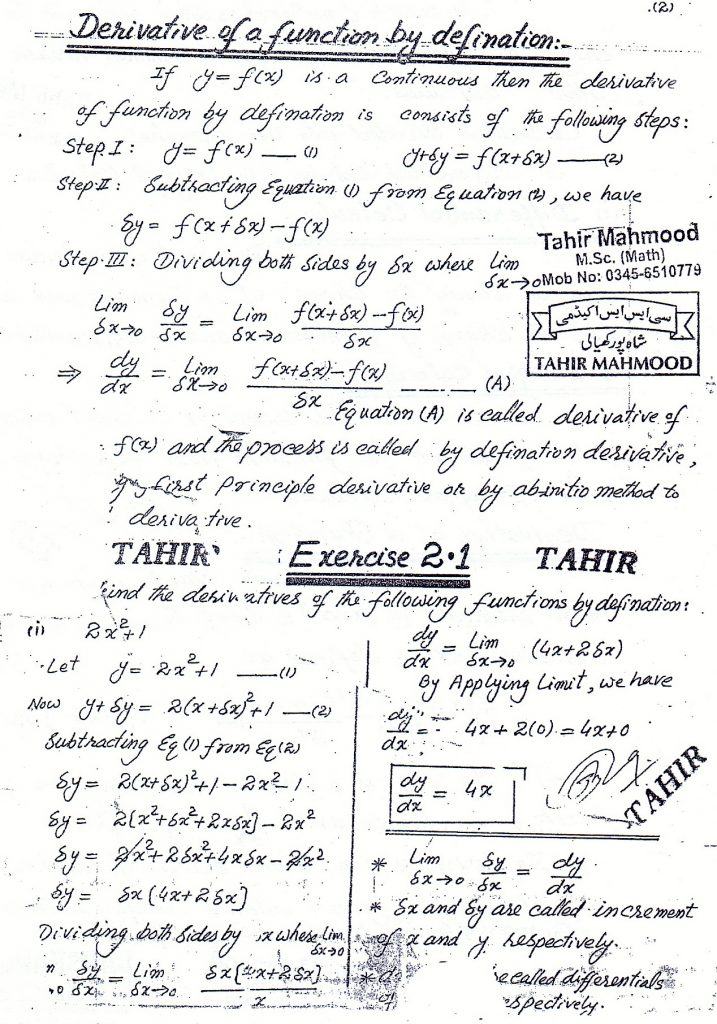 .(2)
Derivative of a function by defination:-
If y = f(x) is a Continuous then the derivative
of function by defination is consists of the following steps:
Step I: y = f(x) — (1) y+δy = f(x+δx) — (2)
Step II: Subtracting Equation (1) from Equation (2), we have
δy = f(x+δx) - f(x)
Step III: Dividing both sides by δx where Lim δx→0
Tahir Mahmood
M.Sc. (Math)
Mob No: 0345-6510779
سی ایس ایس اکیڈمی
شاہ پور کھیالی
TAHIR MAHMOOD
Lim δx→0 δy/δx = Lim δx→0 f(x+δx) - f(x)/δx
⇒ dy/dx = Lim δx→0 f(x+δx) - f(x)/δx — (A)
Equation (A) is called derivative of
f(x) and the process is called by defination derivative,
first Principle derivative or by abinitio method to
derivative.
TAHIR Exercise 2.1 TAHIR
Find the derivatives of the following functions by defination:
(i) 2x²+1
Let y = 2x²+1 — (1)
Now y+δy = 2(x+δx)²+1 — (2)
Subtracting Eq (1) from Eq (2)
δy = 2(x+δx)²+1 - 2x² - 1
δy = 2[x²+δx²+2xδx] - 2x²
δy = 2x²+2δx²+4xδx - 2x²
δy = δx[4x+2δx]
Dividing both sides by x where Lim δx→0
δy/δx = Lim δx→0 δx[4x+2δx]/x
dy/dx = Lim δx→0 (4x+2δx)
By Applying Limit, we have
dy/dx = 4x+2(0) = 4x+0
dy/dx = 4x
TAHIR
* Lim δx→0 δy/δx = dy/dx
* δx and δy are called increment
of x and y respectively.
* d called differentials
of spectively.